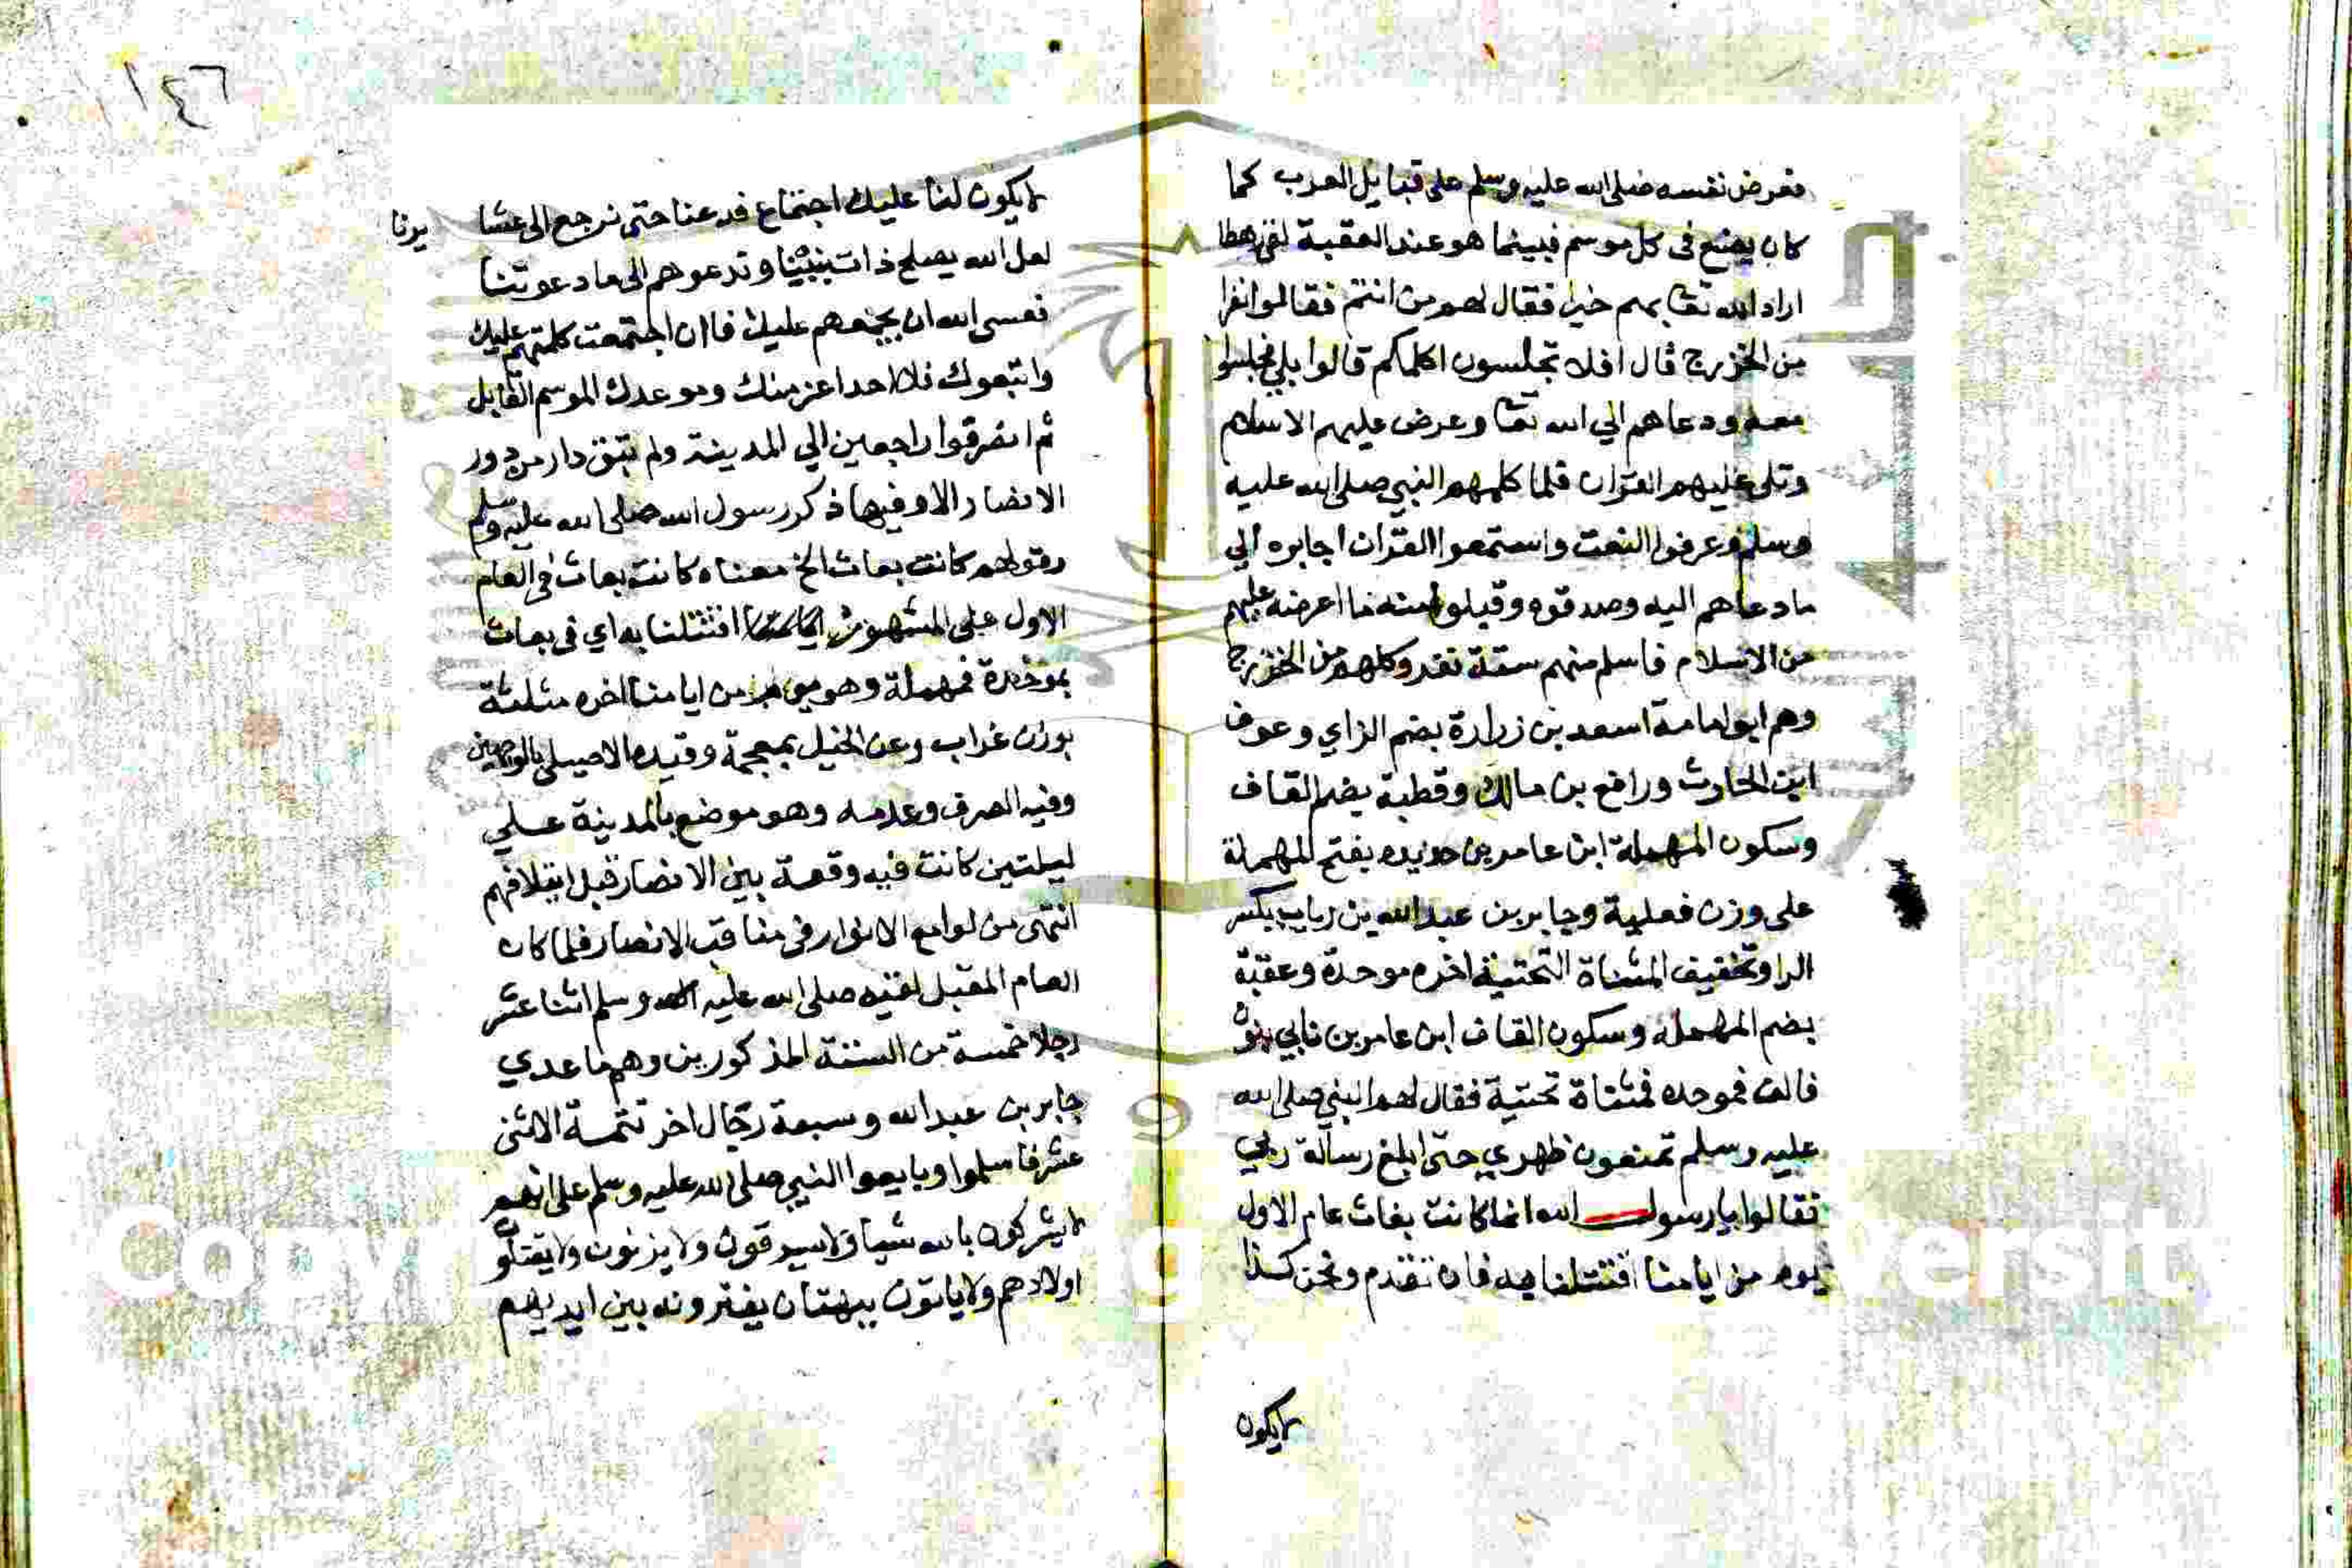 فعرض نفسه صلى الله عليه وسلم على قبايل العرب كما
كان يصنع في كل موسم فبينما هو عند العقبة لقي رهطا
اراد الله تعا بهم خيرا فقال لهم من انتم فقالوا نفرا
من الخزرج قال افلا تجلسون اكلمكم قالوا بلي فجلسوا
معه ودعاهم الي الله تعا وعرض عليهم الاسلام
وتلى عليهم القران فلما كلمهم النبي صلى الله عليه
وسلم وعرفوا النعت واستمعوا القران اجابره الي
ما دعاهم اليه وصدقوه وقبلوا منه ما اعرضه عليهم
من الاسلام فاسلم منهم ستة نفر وكلهم من الخزرج
وهم ابو امامة اسعد بن زرارة بضم الزاي وعوف
ابن الحارث ورافع بن مالك وقطبة بضم القاف
وسكون المهملة ابن عامر بن حديده بفتح المهملة
على وزن فعلية وجابر بن عبد الله بن رياب بكسر
الرا وتخفيف المثناة التحتية اخره موحدة وعقبة
بضم المهمله وسكون القاف ابن عامر بن نابي بنون
فالف فموحده فمثناة تحتية فقال لهم النبي صلى الله
عليه وسلم تمنعون ظهري حتى ابلغ رسالة ربي
فقالوا يا رسول الله انما كانت بغاث عام الاول
يوم من ايامنا اقتتلنا به فان تقدم ونحن كذا
لايكون
١٤٦
لايكون لنا عليك اجتماع فدعنا حتى نرجع الى عشا يرنا
لعل الله يصلح ذات بيننا وتدعوهم الى ما دعوتنا
فعسى الله ان يجمعهم عليك فان اجتمعت كلمتهم عليك
واتبعوك فلا احدا عز منك وموعدك الموسم القابل
ثم انصرفوا راجعين الي المدينة ولم تبق دار من دور
الانصار الا وفيها ذكر رسول الله صلى الله عليه وسلم
وقولهم كانت بعاث الخ معناه كانت بعاث في العام
الاول على المشهور اقتتلنا به اي في بعاث
بموحدة فمهملة وهو يوم من ايامنا اخره مثلثة
بوزن غراب وعن الخليل بمعجمة وقيده الاصيلي بالوجهين
وفيه الصرف وعدمه وهو موضع بالمدينة على
ليلتين كانت فيه وقعة بين الانصار قبل ايتلافهم
انتهى من لوامع الانوار في مناقب الانصار فلما كان
العام المقبل لقيه صلى الله عليه وسلم اثنا عشر
رجلا خمسة من الستة المذكورين وهم ما عدي
جابر بن عبد الله وسبعة رجال اخر تتمة الاثنى
عشر فاسلموا وبايعوا النبي صلى الله عليه وسلم على انهم
لايشركون بالله شيا ولايسرقون ولا يزنون ولايقتلون
اولادهم ولاياتون ببهتان يفترونه بين ايديهم